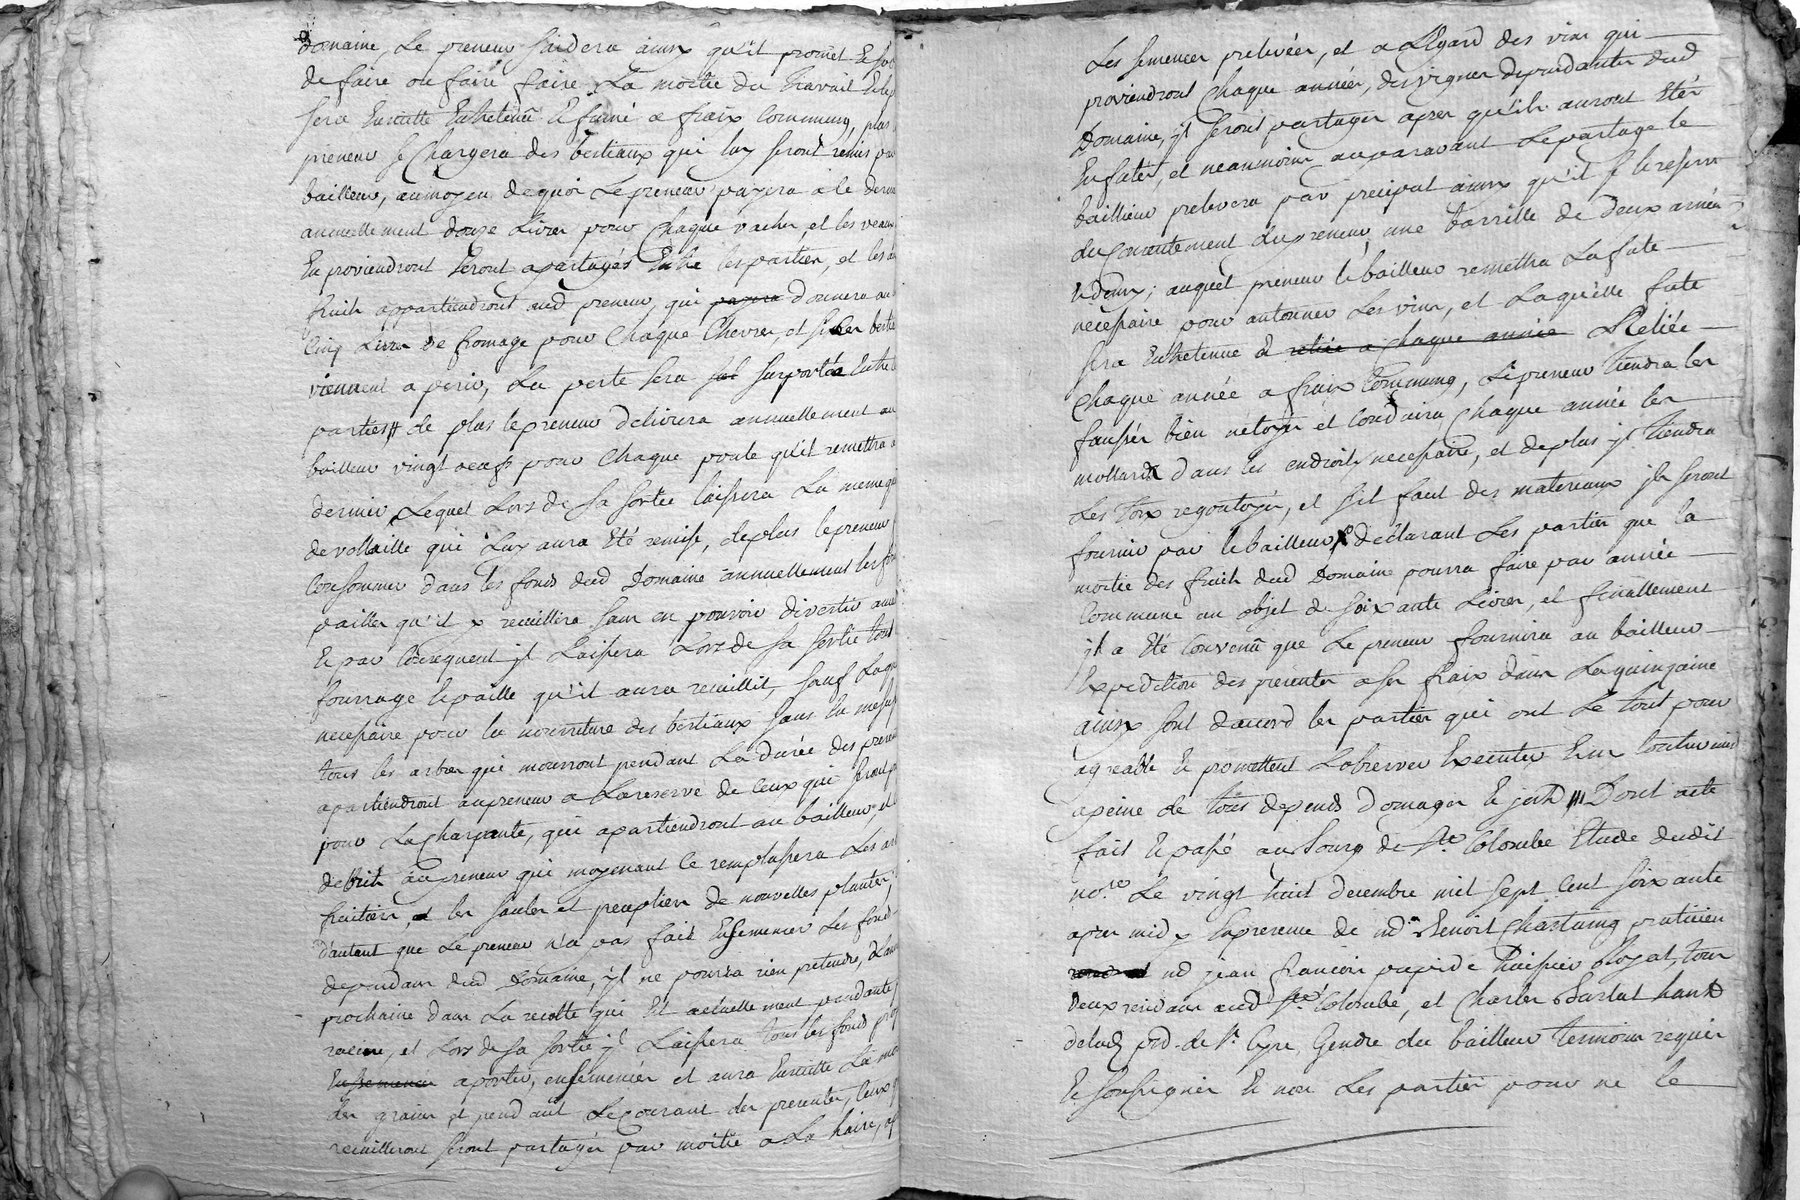 domaine, Le preneur s'aidera ainsy qu'il promet
de faire ou faire faire La moitié du travail
sera Ensuitte Entretenu & fumé a fraix Communs, plus
preneur Se Chargera des bestiaux qui luy seront remis par
bailleur, aumoyen dequoi Le preneur payera a le dernier
annuellement douze Livres pour Chaque vaches, et les veaux
En proviendront seront apartagés Entre les parties, et les
fruits appartiendront aud preneur, qui payera donnera au
Cinq Livres de fromage pour Chaque Chevres, et si les bestiaux
viennent a perir, La perte sera surportée Entre
parties // de plus le preneur delivrera annuellement au
bailleur vingt oeufs pour Chaque poule qu'il remettra a
dernier, Lequel Lors de sa sortie laissera La meme
de vollaille qui Luy aura Eté remise, deplus le preneur
Consommer dans les fonds dud Domaine annuellement les
pailles qu'il y recuillira sans en pouvoir divertir
& par Consequent jl Laissera Lors de sa sortie tout
fourrage & paille qu'il aura recuillit, sauf
necessaire pour la nourriture des bestiaux sans En
tous les arbres qui mourront pendant La durée des presentes
apartiendront aupreneur a Lareserve de Ceux qui seront
pour La Charpente, qui apartiendront au bailleur, et
debrits aupreneur qui moyenant Ce remplassera Les
fruitiers, et les saules et peupliers de nouvelles plantes,
d'autant que Le preneur n'a pas fait Ensemencer Les fonds
dependans dud Domaine, jl ne pourra rien pretendre,
prochaine dans La recolte qui Est actuellement pendante
racine, et Lors de sa sortie jl Laissera tous les fonds
Ensemencer aporter, ensemencés et aura Ensuitte La
des grains et pendant Lecourant des presentes, Ceux
recuilleront seront partagés par moitié a La haire,
Les semences prelevées, et a L'Egard des vins qui
proviendront Chaque années, des vignes dependantes dud
Domaine, jl seront partages apres qu'ils auront Etés
Enfutés, et neanmoins auparavant Lepartage le
baillieur prelevera par preciput ainsy qu'il se le reserve
du Consentement dupreneur, une barrille de deux années
& deux; auquel preneur le bailleur remettra La fute
necessaire pour antonner Les vins, et Laquelle fute
sera Entretenue & reliée a Chaque année & Reliée
Chaque année a fraix Communs, Le preneur tiendra les
faussés bien nétoyés et Conduira Chaque année les
mollards dans les endroits necessaire, et deplus jl tiendra
Les toix regoutoyés, et s'il faut des matereaux jls seront
fournis par le bailleur, declarant Les parties que la
moitié des fruits dud Domaine pourra faire par année
Commune un objet de soixante Livres, et finallement
jl a Eté Convenû que Le preneur fournira au bailleur
Expedition des presentes a ses fraix dans Laquinzaine
ainsy sont daccord les parties qui ont Le tout pour
agreable & promettent Lobserver Executer
apeine de tous depends domages & jnts /// Dont acte
fait & passé au bourg de Ste Colombe Etude dudit
nore. Le vingt huit decembre mil sept Cent soixante
apres midy Enpresence de md Benoit Chastaing praticien
md jean francois huissier Royal, tous
deux residans aud Ste Colombe, et Charles Sarlat
de lad prd. de St. Cyre, Gendre du bailleur temoins requis
& soussignés & non Les parties pour ne le